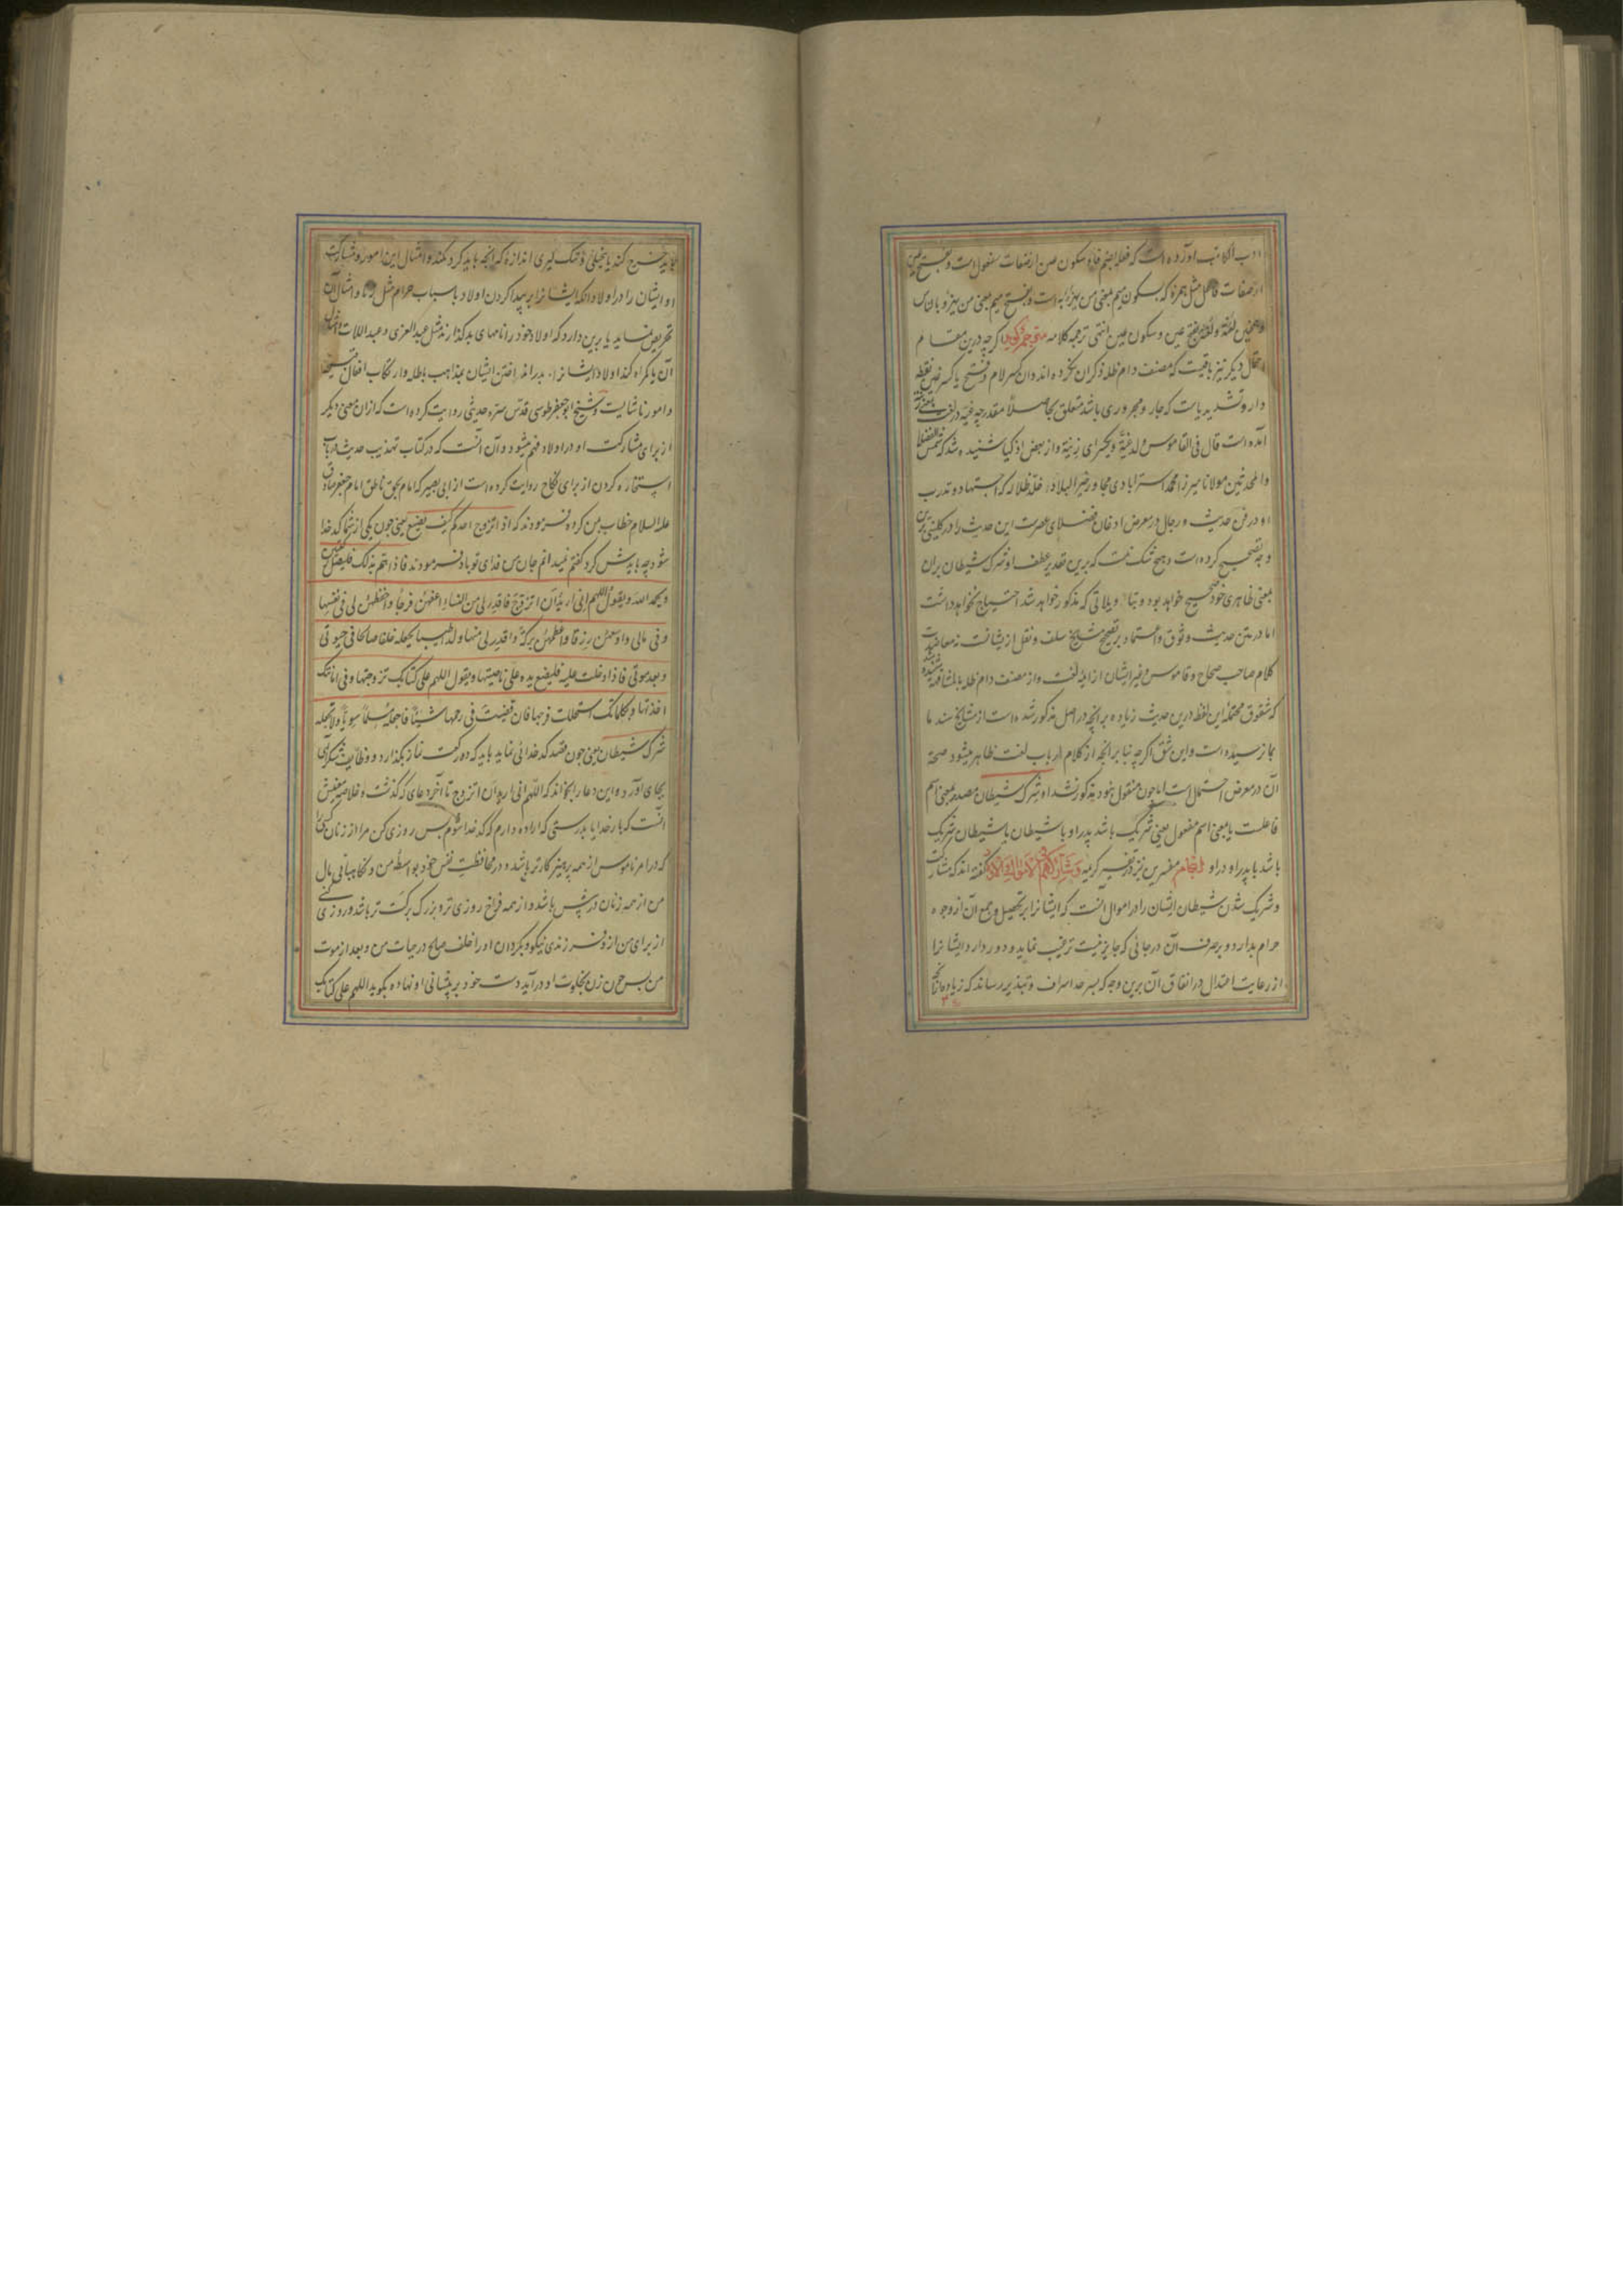 ادب الکاتب آورده است که فعله بضم فا و سکون عین از صفات مفعول است و بفتح عین
از صفات فاعل مثل همزه که بسکون میم بمعنی من یهزأ به است و بفتح میم بمعنی من یهزأ بالناس
و همچنین لعنة و لعنة بفتح عین و سکون عین انتهی ترجمه کلامه مترجم گوید گرچه درین مقام
احتمال دیگر نیز باقیست که مصنف دام ظله ذکر آن نکرده اند و آن کسر لام و فتح یا کسر غین نقطه
دار و تشدید یاست که جار و مجروری باشد متعلق بحاصلا مقدر چه غیه در لغت
آمده است قال فی القاموس ولد غیة و یکسر ای زنیة و از بعض اذکیا شنیده شد که شمس الفضلا
والمحدثین مولانا میرزا محمد استرابادی مجاور خیر البلاد خلد ظلاله که اجتهاد و تدرب
او در فن حدیث و رجال در معرض اذعان فضلای عصرست این حدیث را در کلینی برین
وجه تصحیح کرده است و هیچ شک نیست که برین تقدیر عطف او شرک شیطان بران
بمعنی ظاهری خود صحیح خواهد بود و بتاویلاتی که مذکور خواهد شد احتیاج نخواهد داشت
اما در متن حدیث وثوق و اعتماد بر تصحیح مشایخ سلف و نقل از یشانست نه معاضدت
کلام صاحب صحاح و قاموس و غیر ایشان از ایمه لغت و از مصنف دام ظله بالمشافهه شنیده شد
که شقوق محتمله این لفظ درین حدیث زیاده بر آنچه در اصل مذکور شده است از مشایخ سند ما
بما نرسیده است و این شق اگرچه بنا بر آنچه از کلام ارباب لغت ظاهر میشود صحة
آن در معرض احتمال است اما چون منقول نبود مذکور نشد او شرک شیطان مصدر بمعنی اسم
فاعلست یا بمعنی اسم مفعول یعنی شریک باشد پدر او با شیطان یا شیطان شریک
باشد با پدر او در او مفسرین نیز در تفسیر کریمه و شارکهم فی الاموال و الاولاد گفته اند که مشارکت
و شریک شدن شیطان ایشان را در اموال آنست که ایشانرا بر تحصیل و جمع آن از وجوه
حرام بدارد و بر صرف آن در جائی که جایز نیست ترغیب نماید و دور دارد ایشانرا
از رعایت اعتدال در انفاق آن برین وجه که بسر حد اسراف و تبذیر رساند که زیاده از آنچه
باید خرج کند یا بخیلی و تنک گیری اندازه که آنچه باید کرد نکند و امثال این امور و مشارکت
او ایشان را در اولاد آنکه ایشانرا بر پیدا کردن اولاد باسباب حرام مثل زنا و امثال آن
تحریص نماید یا برین دارد که اولاد خود را نامهای بد گذارند مثل عبد العزی و عبد اللات و امثال
آن یا گمراه کند اولاد ایشانرا بدر انداختن ایشان بمذاهب باطله و ارتکاب افعال قبیحه
و امور ناشایست و شیخ ابوجعفر طوسی قدس سره حدیثی روایت کرده است که ازان معنی دیگر
از برای مشارکت او در اولاد فهم میشود و آن آنست که در کتاب تهذیب حدیث در باب
استخاره کردن از برای نکاح روایت کرده است از ابی بصیر که امام بحق ناطق امام جعفر صادق
علیه السلام خطاب بمن کرده فرمودند که اذا تزوج احدکم کیف یصنع یعنی چون یکی از شما کدخدا
شود چه بایدش کرد گفتم نمیدانم جان من فدای تو باد فرمودند فاذا هم بذلک فلیصل رکعتین
و یحمد الله و یقول اللهم انی ارید ان اتزوج فاقدر لی من النساء اعفهن فرجا و احفظهن لی فی نفسها
و فی مالی و اوسعهن رزقا و اعظمهن برکة و اقدر لی منها ولدا طیبا تجعله خلفا صالحا فی حیوتی
و بعد موتی فاذا دخلت علیه فلیضع یده علی ناصیتها و یقول اللهم علی کتابک تزوجتها و فی امانتک
اخذتها و بکلماتک استحللت فرجها فان قضیت فی رحمها شیئا فاجعله مسلما سویا و لا تجعله
شرک شیطان یعنی چون قصد کدخدائی نماید باید که دو رکعت نماز بگذارد و وظایف شکر الهی
بجای آورد و این دعا را بخواند که اللهم انی ارید ان اتزوج تا آخر دعای که گذشت و خلاصه معنیش
آنست که بار خدایا بدرستی که اراده دارم که کدخدا شوم پس روزی کن مرا از زنان کسی را
که در امر ناموس از همه پرهیزگارتر باشد و در محافظت نفس خود بواسطه من و نگاهبانی مال
من از همه زنان در پیش باشد و از همه فراخ روزی تر و بزرگ برکت تر باشد و روزی کن
از برای من ازو فرزندی نیکو و بگردان او را خلف صالح در حیات من و بعد از موت
من پس چون زن بخلوت او درآید دست خود بر پیشانی او نهاده بگوید اللهم علی کتابک